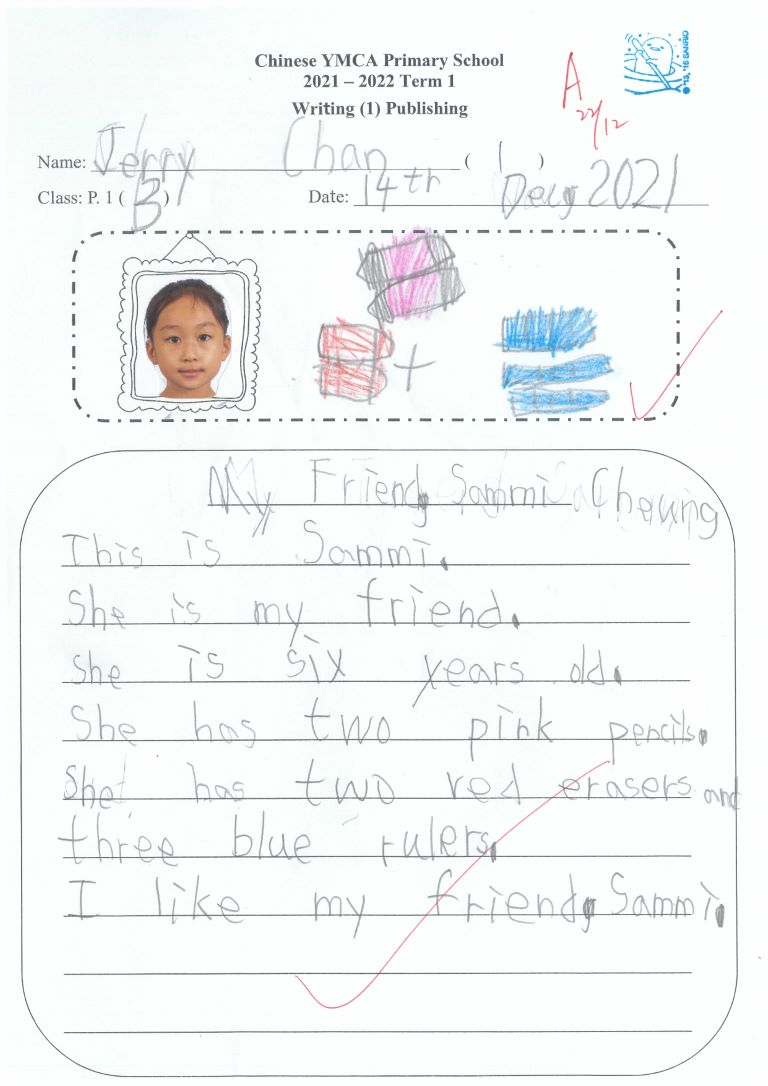 Chinese YMCA Primary School
2021 – 2022 Term 1
Writing (1) Publishing
A
22/12
© '13, '16 SANRIO
Name: Jerry Chan ( 1 )
Class: P. 1 ( B ) Date: 14th Dec, 2021
+
My Friend, Sammi Cheung
This is Sammi.
She is my friend.
She is six years old.
She has two pink pencils.
She has two red erasers and
three blue rulers.
I like my friend, Sammi.